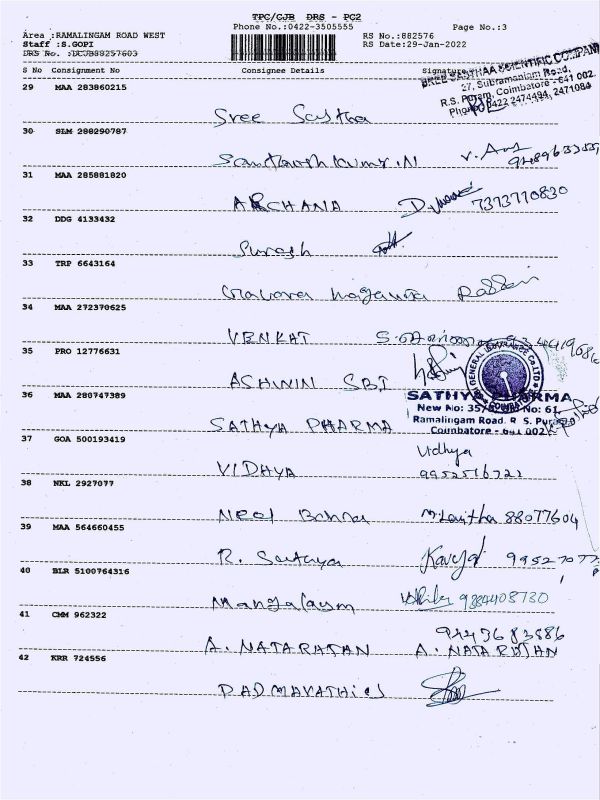 TPC/CJB DRS - PC2
Phone No.:0422-3505555
Page No.:3
Area :RAMALINGAM ROAD WEST
RS No.:882576
Staff :S.GOPI
RS Date:29-Jan-2022
DRS No. :DCJB88257603
S No Consignment No Consignee Details Signature
SREE SASTHAA SCIENTIFIC COMPANY
27, Subramaniam Road,
R.S. Puram, Coimbatore - 641 002.
Phone: 0422 2474494, 2471084
29 MAA 283860215
Sree Sastha
30 SLM 288290787
Santhosh Kumar.N
31 MAA 285881820
ARCHANA 7373710830
32 DDG 4133432
Suresh
33 TRP 6643164
34 MAA 272370625
VENKAT
35 PRO 12776631
ASHWIN SBI
GENERAL INSURANCE Co LTD
36 MAA 280747389
SATHYA PHARMA
New No: No: 61,
Ramalingam Road. R. S. Puram
Coimbatore - 641 002
SATHYA PHARMA
37 GOA 500193419
Vidhya
VIDHYA 9952516722
38 NKL 2927077
Neel 88077604
39 MAA 564660455
R. Kavya
40 BLR 5100764316
Mangalaym 9884408730
41 CMM 962322
A. NATARAJAN A. NATARAJAN
42 KRR 724556
PADMAVATHI